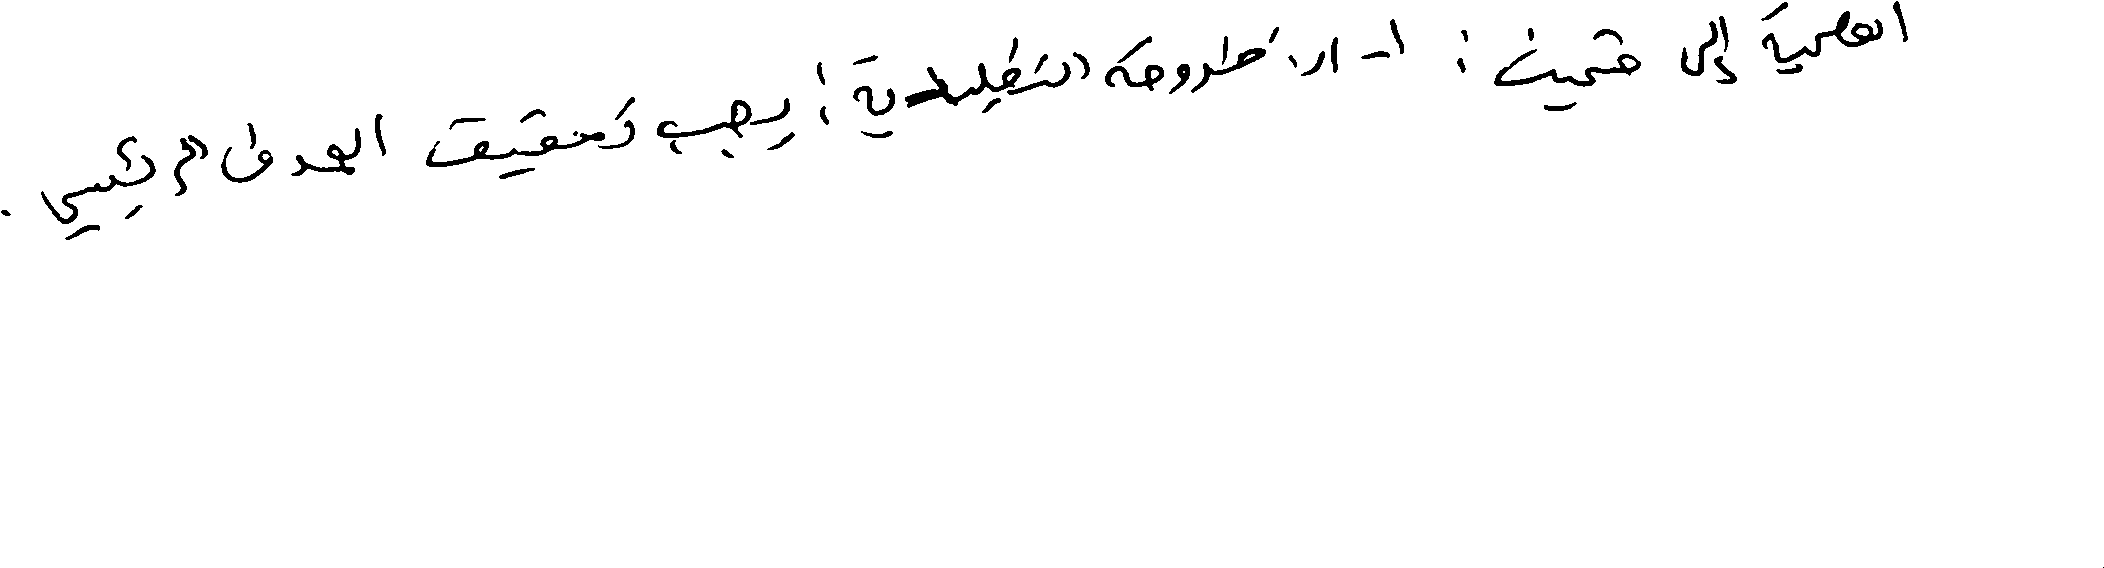 العلمية إلى قسمين : ١- الأطروحة التقليدية : يجب تحقيق الهدف الرئيسي .